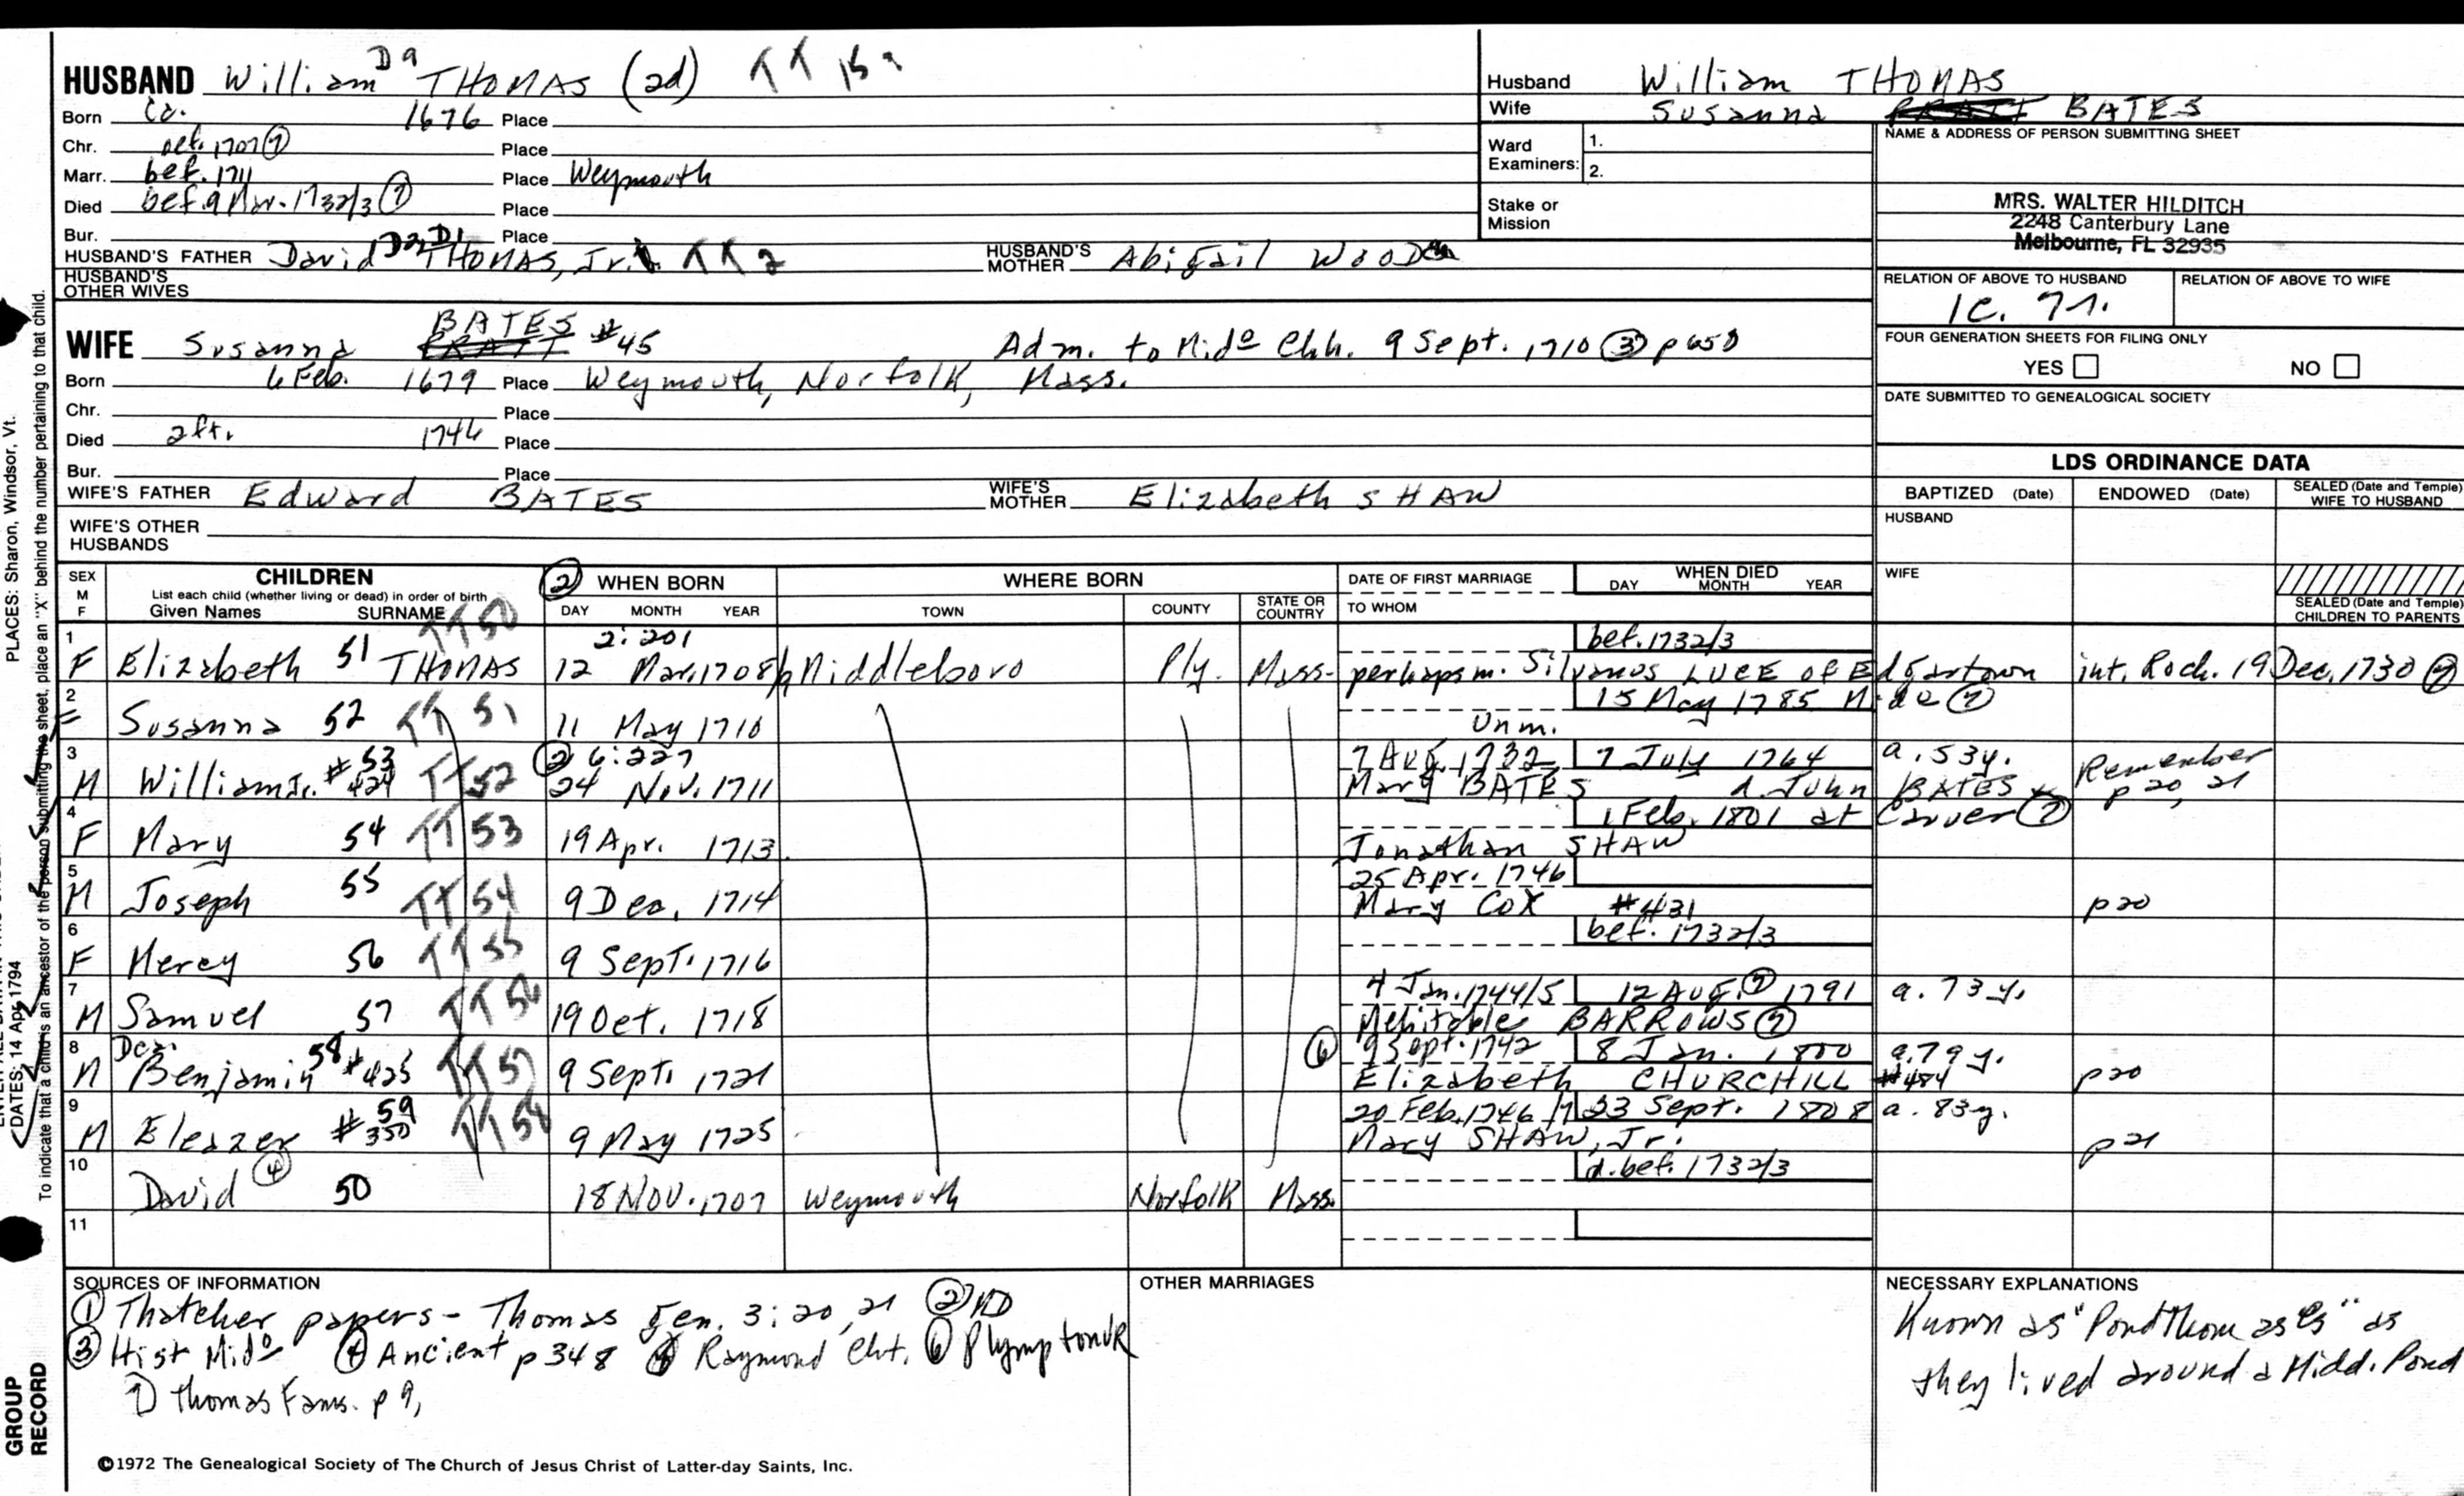 HUSBAND William D9 THOMAS (2d) TT
Born Ca. 1676 Place
Chr. Place
Marr. bef. 1711 Place Weymouth
Died bef. 9 Mar. 1732/3 (7) Place
Bur. Place
HUSBAND'S FATHER David THOMAS, Jr. TT 2 HUSBAND'S MOTHER Abigail WOOD
HUSBAND'S OTHER WIVES
Husband William THOMAS
Wife Susanna PRATT BATES
Ward Examiners: 1.
2.
Stake or Mission
NAME & ADDRESS OF PERSON SUBMITTING SHEET
MRS. WALTER HILDITCH
2248 Canterbury Lane
Melbourne, FL 32935
RELATION OF ABOVE TO HUSBAND RELATION OF ABOVE TO WIFE
1c. 7r.
FOUR GENERATION SHEETS FOR FILING ONLY
YES NO
DATE SUBMITTED TO GENEALOGICAL SOCIETY
BATES
WIFE Susanna PRATT #45 Adm. to Mido Chh. 9 Sept. 1710 (3) p 650
Born 6 Feb. 1679 Place Weymouth, Norfolk, Mass.
Chr. Place
Died aft. 1746 Place
Bur. Place
WIFE'S FATHER Edward BATES WIFE'S MOTHER Elizabeth SHAW
WIFE'S OTHER HUSBANDS
LDS ORDINANCE DATA
BAPTIZED (Date) ENDOWED (Date) SEALED (Date and Temple) WIFE TO HUSBAND
HUSBAND
WIFE
SEALED (Date and Temple) CHILDREN TO PARENTS
SEX M F
CHILDREN
List each child (whether living or dead) in order of birth
Given Names SURNAME
(2) WHEN BORN
DAY MONTH YEAR
WHERE BORN
TOWN COUNTY STATE OR COUNTRY
DATE OF FIRST MARRIAGE
TO WHOM
WHEN DIED
DAY MONTH YEAR
1 TT50 2:201 bef. 1732/3
F Elizabeth 51 THOMAS 12 Mar. 1708/9 Middleboro Ply. Mass. perhaps m. Silvanus LUCE of Edgartown int. Roch. 19 Dec. 1730 (7)
2 15 May 1785 Mido (7)
F Susanna 52 TT 51 11 May 1710 Unm.
3 #53 (2) 6:227 7 Aug. 1732 7 July 1764 a. 53y. Remember
M William Jr. #424 TT52 24 Nov. 1711 Mary BATES d. John BATES p 20, 21
4 1 Feb. 1801 at Carver (7)
F Mary 54 TT53 19 Apr. 1713 Jonathan SHAW
5 25 Apr. 1746
M Joseph 55 TT54 9 Dec. 1714 Mary COX #431 p20
6 bef. 1732/3
F Mercy 56 TT55 9 Sept. 1716
7 4 Jan. 1744/5 12 Aug. (7) 1791 a. 73y.
M Samuel 57 TT56 19 Oct. 1718 Mehitable BARROWS (7)
8 Dea. (6) 9 Sept. 1742 8 Jan. 1800 a. 79y.
M Benjamin 58 #425 TT57 9 Sept. 1721 Elizabeth CHURCHILL #484 p20
9 59 20 Feb. 1746/7 23 Sept. 1808 a. 83y.
M Eleazer #350 TT58 9 May 1725 Mary SHAW, Jr. p21
10 d. bef. 1732/3
David (4) 50 18 Nov. 1707 Weymouth Norfolk Mass.
11
SOURCES OF INFORMATION
(1) Thatcher papers - Thomas Gen. 3:20,21 (2) MD
(3) Hist Mido (4) Ancient p 348 Raymond Cht. (6) Plympton VR
7) Thomas Fams. p 9,
OTHER MARRIAGES
NECESSARY EXPLANATIONS
Known as "Pond Thomases" as
they lived around a Midd. Pond
©1972 The Genealogical Society of The Church of Jesus Christ of Latter-day Saints, Inc.
PLACES: Sharon, Windsor, Vt.
To indicate that a child is an ancestor of the person submitting the sheet, place an "X" behind the number pertaining to that child.
DATES: 14 Apr 1794
GROUP RECORD